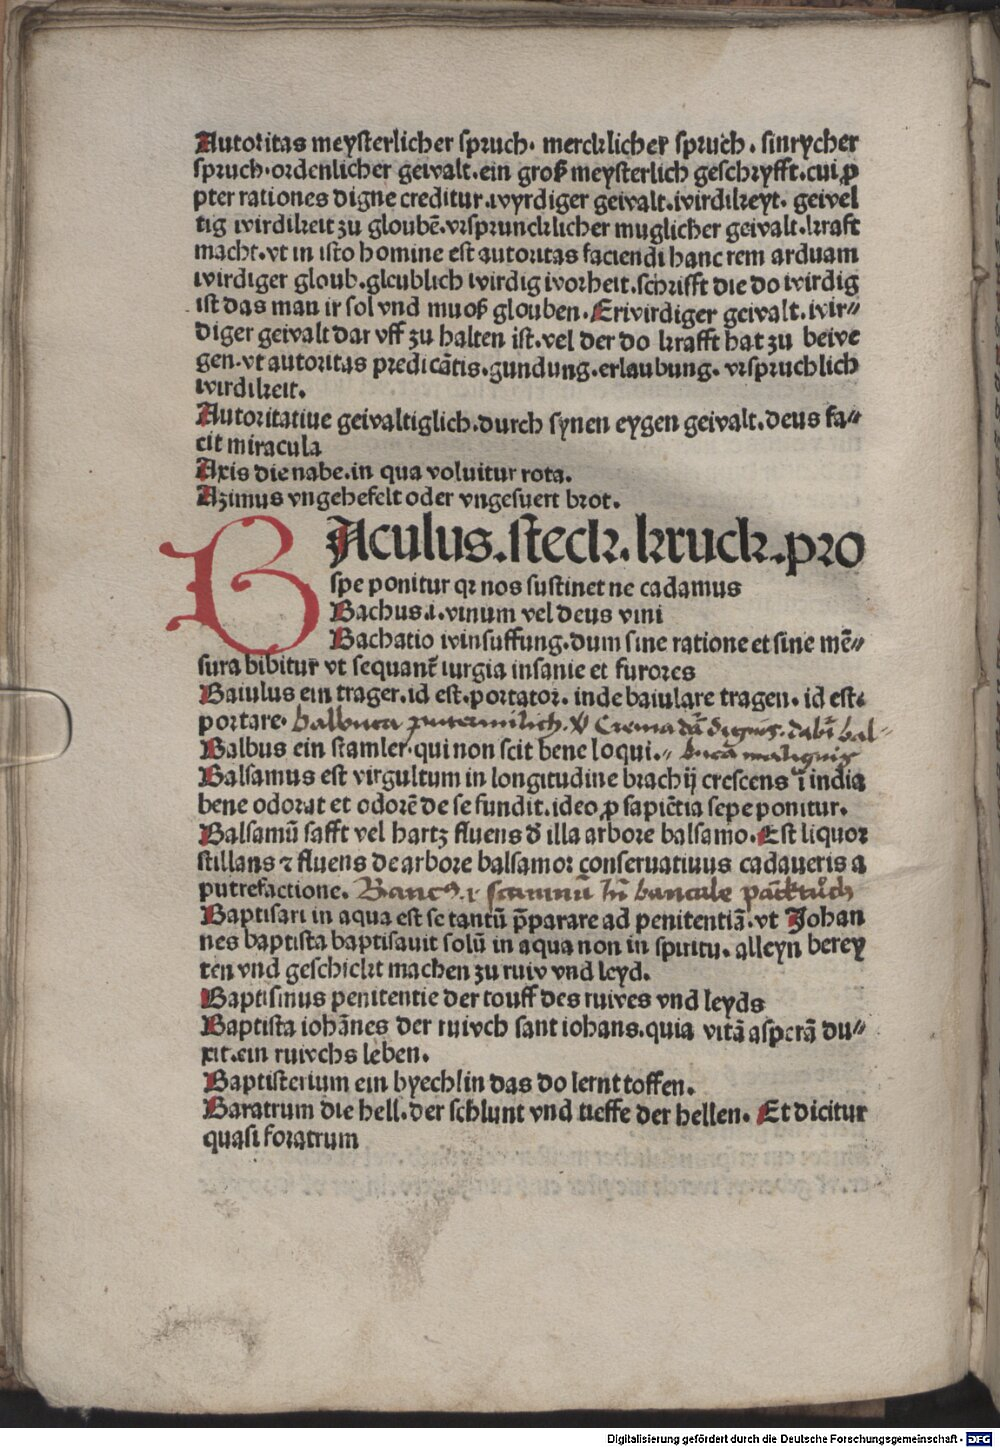 Autoritas meysterlicher spruch. mercklicher spruch. sinrycher
spruch. ordenlicher gewalt. ein groß meysterlich geschryfft. cui ꝓ
pter rationes digne creditur. wyrdiger gewalt. wirdikeyt. gewel
tig wirdikeit zu gloubē. vrsprunklicher muglicher gewalt. kraft
macht. vt in isto homine est autoritas faciendi hanc rem arduam
wirdiger gloub. gleublich wirdig worheit. schrifft die do wirdig
ist das man ir sol vnd muoß glouben. Erwirdiger gewalt. wir⸗
diger gewalt dar vff zu halten ist. vel der do krafft hat zu bewe
gen. vt autoritas predicātis. gundung. erlaubung. vrspruchlich
wirdikeit.
Autoritatiue gewaltiglich. durch synen eygen gewalt. deus fa⸗
cit miracula
Axis die nabe. in qua voluitur rota.
Azimus vngehefelt oder vngesuert brot.
BAculus. steck. kruck. pro
spe ponitur qꝛ nos sustinet ne cadamus
Bachus .i. vinum vel deus vini
Bachatio winsuffung. dum sine ratione et sine mē⸗
sura bibitur vt sequant̄ iurgia insanie et furores
Baiulus ein trager. id est. portator. inde baiulare tragen. id est.
portare. balbuca Crema dā dignis. dabi bal-
Balbus ein stamler. qui non scit bene loqui. bucā malignis
Balsamus est virgultum in longitudine brachij crescens ī india
bene odorat et odorē de se fundit. ideo ꝓ sapiētia sepe ponitur.
Balsamū safft vel hartz fluens đ illa arbore balsamo. Est liquor
stillans ⁊ fluens de arbore balsamoꝛ conseruatiuus cadaueris a
putrefactione. Bancꝰ .i. scamnū bancale
Baptisari in aqua est se tantū p̄parare ad penitentiā. vt Johan
nes baptista baptisauit solū in aqua non in spiritu. alleyn berey
ten vnd geschickt machen zu ruw vnd leyd.
Baptismus penitentie der touff des ruwes vnd leyds
Baptista iohānes der ruwch sant iohans. quia vitā asperā du⸗
xit. ein ruwchs leben.
Baptisterium ein byechlin das do lernt toffen.
Baratrum die hell. der schlunt vnd tieffe der hellen. Et dicitur
quasi foratrum
Digitalisierung gefördert durch die Deutsche Forschungsgemeinschaft - DFG